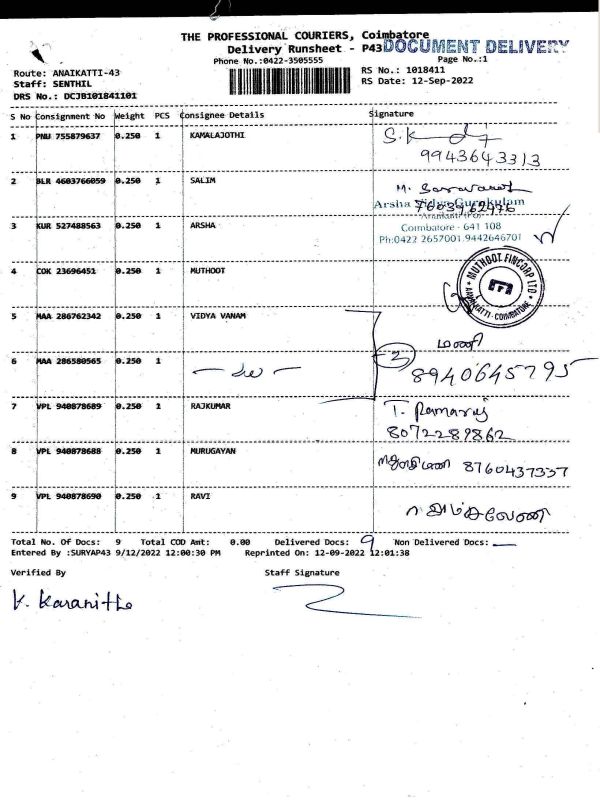 THE PROFESSIONAL COURIERS, Coimbatore
Delivery Runsheet - P43
DOCUMENT DELIVERY
Phone No.:0422-3505555
Page No.:1
Route: ANAIKATTI-43
RS No.: 1018411
Staff: SENTHIL
RS Date: 12-Sep-2022
DRS No.: DCJB101841101
S No Consignment No Weight PCS Consignee Details Signature
1 PNU 755879637 0.250 1 KAMALAJOTHI
9943643313
2 BLR 4603766059 0.250 1 SALIM
M. Saravanan
Arsha Vidya Gurukulam
Anaikatti (PO)
3 KUR 527488563 0.250 1 ARSHA
Coimbatore - 641 108
Ph:0422 2657001.9442646701
4 COK 23696451 0.250 1 MUTHOOT
MUTHOOT FINCORP LTD
ANAIKATTI - COIMBATORE
5 MAA 286762342 0.250 1 VIDYA VANAM
மணி
6 MAA 286580565 0.250 1
2
8940645795
7 VPL 940878689 0.250 1 RAJKUMAR
T. Ramaraj
8072289862
8 VPL 940878688 0.250 1 MURUGAYAN
8760437337
9 VPL 940878690 0.250 1 RAVI
Total No. Of Docs: 9 Total COD Amt: 0.00 Delivered Docs: 9 Non Delivered Docs:
Entered By :SURYAP43 9/12/2022 12:00:30 PM Reprinted On: 12-09-2022 12:01:38
Verified By Staff Signature